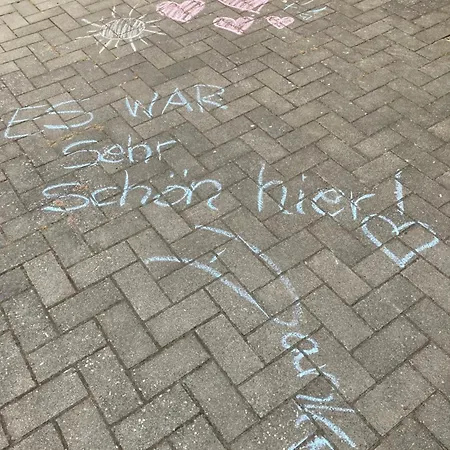 ES WAR
Sehr
Schön hier!
Danke